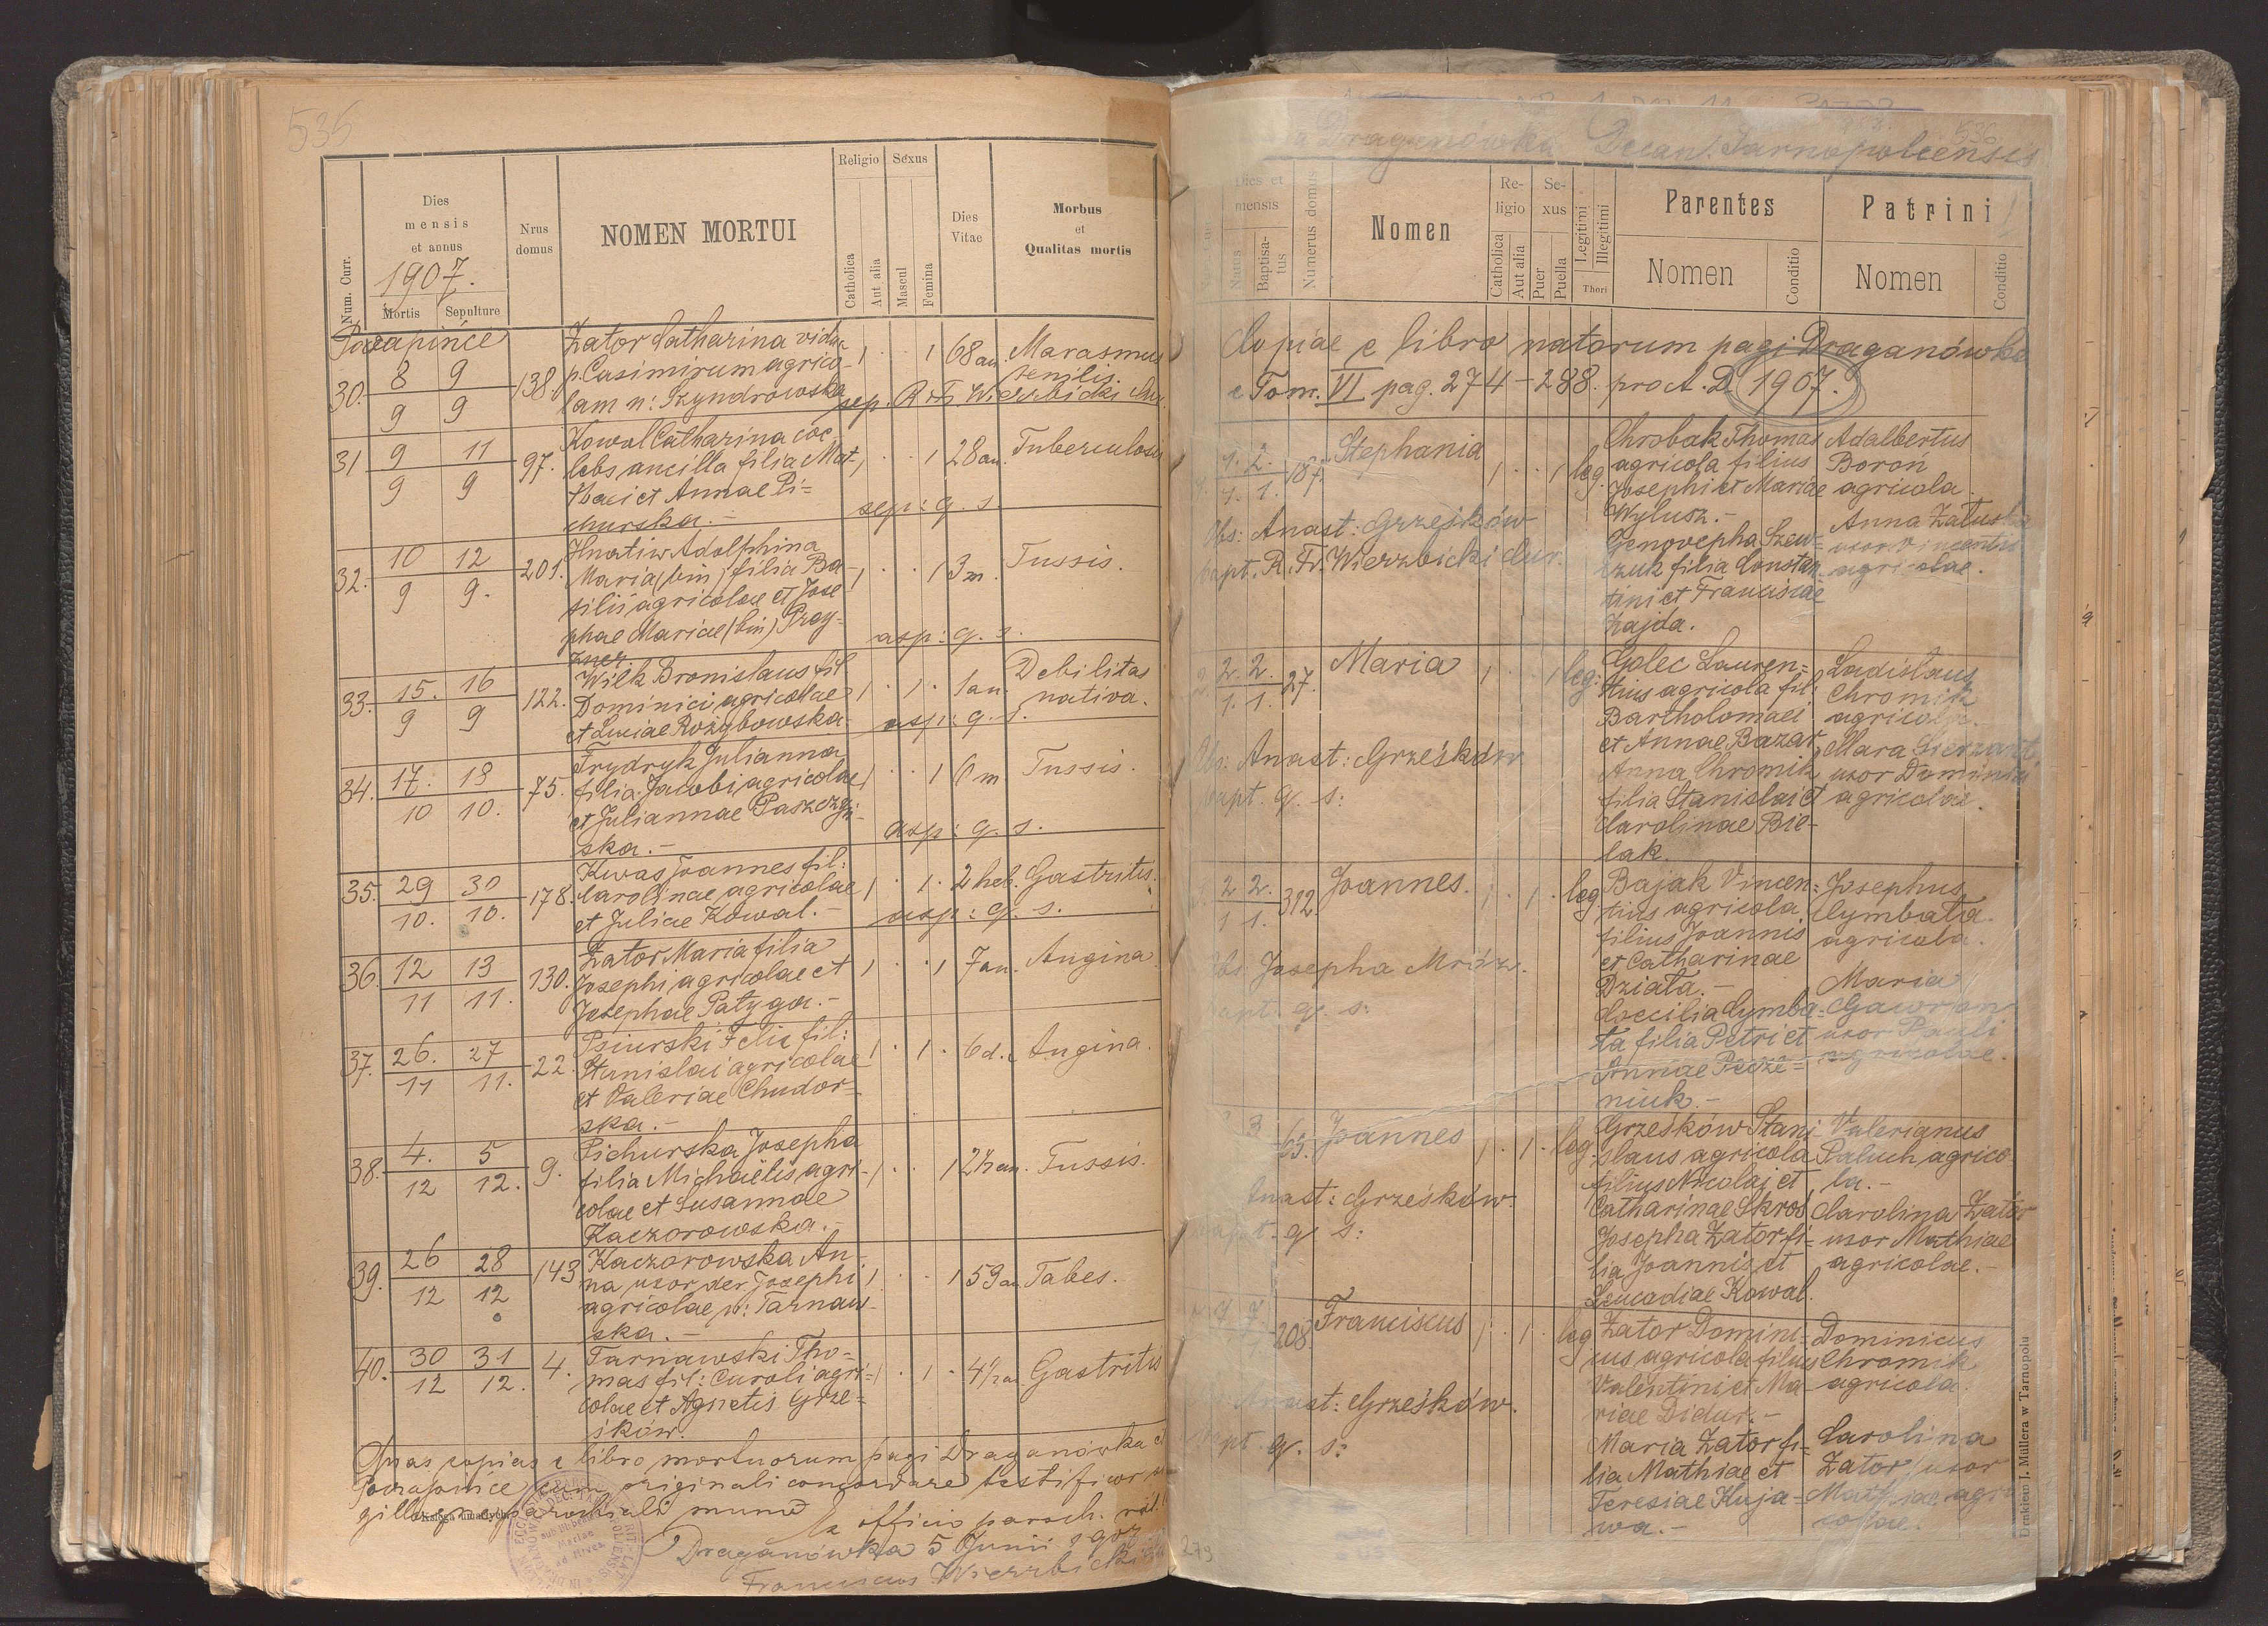 535
Num. Curr.
Dies
mensis
et annus
1907.
Mortis
Sepulture
Nrus
domus
NOMEN MORTUI
Religio
Catholica
Aut alia
Sexus
Mascul
Femina
Dies
Vitae
Morbus
et
Qualitas mortis
Poczapińce
30. 8 9 138. Zator Catharina vidua 1 . . 1 68 an. Marasmus
9 9 p. Casimirum agrico- senilis.
lam n: Szyndrowska sep. R. Fr. Wierzbicki Cur.
31 9 11 97. Kowal Catharina coe 1 . . 1 28 an. Tuberculosis
9 9 lebs ancilla filia Mat-
thaei et Annae Pi=
churska.- sep: q. s.
32. 10 12 201. Hnatiw Adolphina 1 . . 1 3 m. Tussis.
9 9. Maria (bin) filia Ba-
silii agricolae et Jose
phae Mariae (bin) Przy-
asp: q. s.
33. 15. 16 122. Wilk Bronislaus fil 1 . 1 . 1 an. Debilitas
9 9 Dominici agricolae nativa.
et Luciae Rozgbowska. asp: q. s.
34. 17. 18 75. Frydryk Julianna 1 . . 1 6 m Tussis.
10 10. filia Jacobi agricolae
et Juliannae Paszczyń-
ska.- asp: q. s.
35. 29 30 178. Kwas Joannes fil: 1 . 1 . 2 heb. Gastritis.
10. 10. Carolinae agricolae
et Juliae Kowal.- asp: q. s.
36. 12 13 130. Zator Maria filia 1 . . 1 7 an. Angina.
11 11. Josephi agricolae et
Josephae Patyga.-
37. 26. 27 22. Psiurski Felix fil: 1 . 1 . 6 d. Angina.
11 11. Stanislai agricolae
et Valeriae Chudor-
ska.-
38. 4. 5 9. Pichurska Josepha 1 . . 1 2½ an. Tussis.
12 12. filia Michaelis agri-
colae et Susannae
Kaczorowska.-
39. 26 28 143 Kaczorowska An- 1 . . 1 59 an Tabes.
12 12 na uxor der. Josephi
agricolae n: Tarnaw-
ska.-
40. 30 31 4. Tarnawski Tho- 1 . 1 . 4½ an Gastritis
12 12. mas fil: Caroli agri-
colae et Agnetis Grze-
śków.
Quas copias e libro mortuorum pagi Draganówka et
Poczapińce cum originali concordare testificor
Księga umarłych.
Ex officio paroch. r. l.
Draganówka 5 Junii 1907
Franciscus Wierzbicki
536
Draganówka Decan. Tarnopoliensis
Dies et
mensis
Natus
Baptisa-
tus
Numerus domus
Nomen
Re-
ligio
Catholica
Aut alia
Se-
xus
Puer
Puella
Legitimi
Illegitimi
Thori
Parentes
Nomen
Conditio
Patrini
Nomen
Conditio
Copiae e libro natorum pagi Draganówka
e Tom. VI pag. 274-288. pro A. D. 1907.
1. 2. 187. Stephania 1 . . 1 leg. Chrobak Thomas Adalbertus
1. 1. agricola filius Boroń
Josephi et Mariae agricola.
Wylusz.-
Obs: Anast: Grześków Anna Załuska
bapt. R. Fr. Wierzbicki Cur. Genovepha Szew= uxor Vincentii
czuk filia Constan- agricolae.
tini et Franciscae
Zajda.
2. 2. 27. Maria 1 . . 1 leg: Golec Lauren= Ladislaus
1. 1. tius agricola fil: Chromik
Bartholomaei agricola.
et Annae Bazar
Obs: Anast: Grześków Anna Chromik uxor Dominici
bapt. q. s: filia Stanislai et agricolae.
Carolinae Bie-
lak.
2 2. 312. Joannes. 1 . 1 . leg Bajak Vincen= Josephus
1 1. tius agricola Cymbała.
filius Joannis agricola.
et Catharinae
Obs. Josepha Mróz. Działa.- Maria
bapt. q. s: Coecilia Cymba= Gawron
ła filia Petri et uxor Pauli
Annae Pecze= agricolae.
niuk.-
3 63. Joannes 1 . 1 . leg. Grześków Stani Valerianus
slaus agricola Paluch agrico-
filius Nicolai et la.-
Anast: Grześków. Catharinae Skroś Carolina Zator
bapt. q. s: Josepha Zator fi= uxor Mathiae
lia Joannis et agricolae.-
Leucadiae Kowal.
7 7. 208. Franciscus 1 . 1 . leg Zator Domini= Dominicus
cus agricola filius Chromik
Valentini et Ma- agricola.
Anast: Grześków. riae Didur.-
bapt. q. s: Maria Zator fi= Carolina
lia Mathiae et Zator uxor
Teresiae Kuja- Mathiae agri
wa.- colae.
Drukiem J. Müllera w Tarnopolu
279